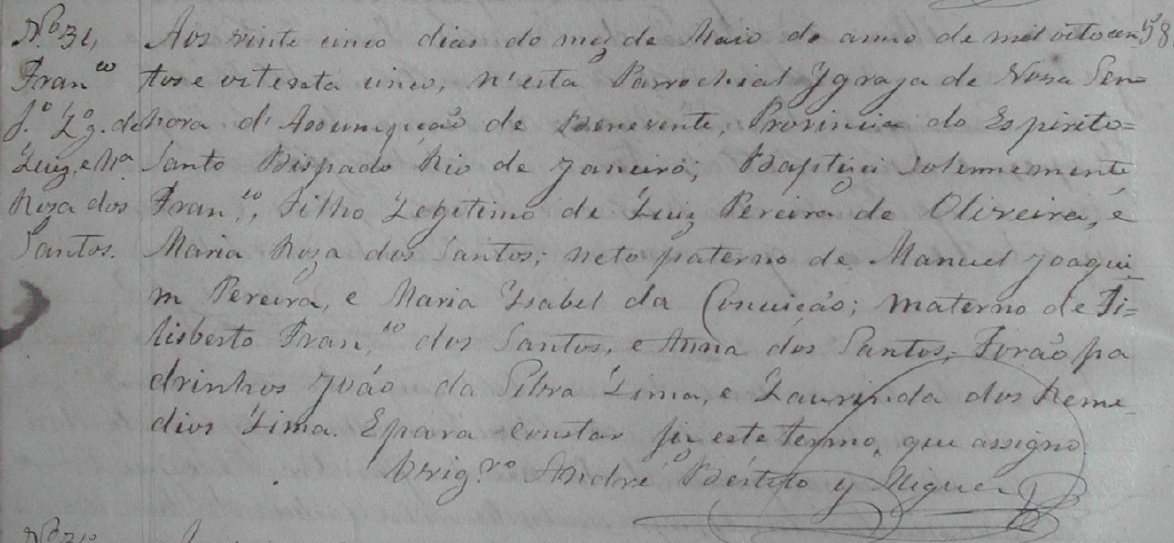 Nº 31,
Fran.co
f.º Lg. de
Luiz, e Mª
Roza dos
Santos.
Aos vinte cinco dias do mez de Maio do anno de mil oitocen 58
tos e oitenta cinco, n'esta Parrochial Ygreja de Nosa Sen=
hora d'Assumpção de Benevente, Provincia do Espirito=
Santo Bispado Rio de Janeiro; Baptizei Solemnemente
Fran.co, Filho Legitimo de Luiz Pereira de Oliveira, e
Maria Roza dos Santos; neto paterno de Manuel Joaqui
m Pereira, e Maria Ysabel da Conceição; materno de Fi=
lisberto Fran.co dos Santos, e Anna dos Santos; Forão pa
drinhos João da Silva Lima, e Laurinda dos Reme
dios Lima. E para constar fiz este termo, que assigno.
O Vig.ro André